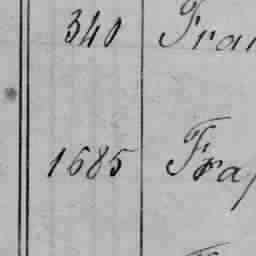 340 Fran
1685 Frap